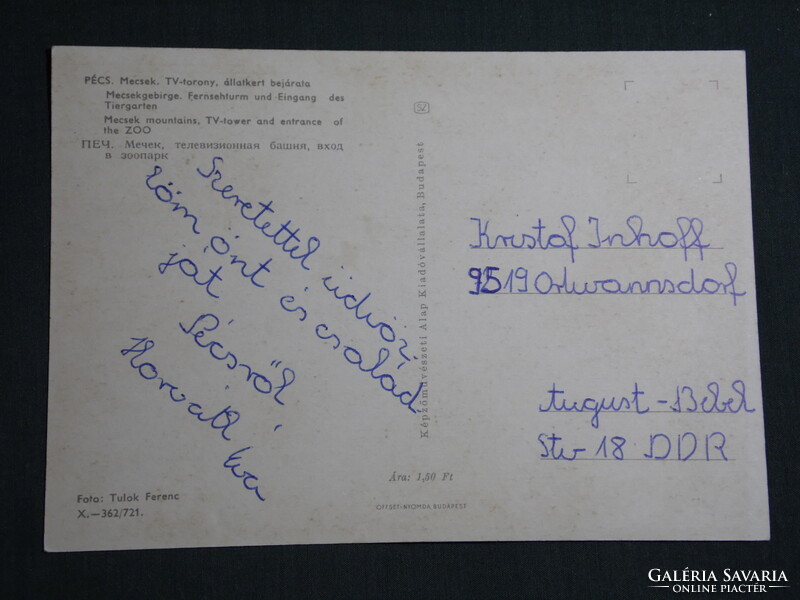 PÉCS. Mecsek. TV-torony, állatkert bejárata
Mecsekgebirge. Fernsehturm und Eingang des
Tiergarten
Mecsek mountains, TV-tower and entrance of
the ZOO
ПЕЧ. Мечек, телевизионная башня, вход
в зоопарк
Szeretettel üdvöz-
löm önt és család
ját Pécsről
Horváth Éva
Képzőművészeti Alap Kiadóvállalata, Budapest
SZ
Kristof Inhoff
9519 Ortwannsdorf
August-Bebel
Str 18 DDR
Ára: 1,50 Ft
Foto: Tulok Ferenc
X.—362/721.
OFFSET-NYOMDA, BUDAPEST
GALÉRIA SAVARIA
ONLINE PIACTÉR